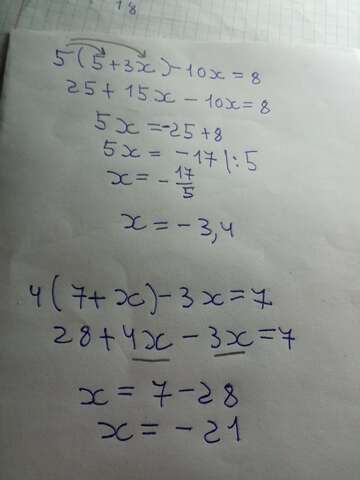 18
5(5+3x)-10x=8
25+15x-10x=8
5x=-25+8
5x=-17|:5
x=-17/5
x=-3,4
4(7+x)-3x=7
28+4x-3x=7
x=7-28
x=-21